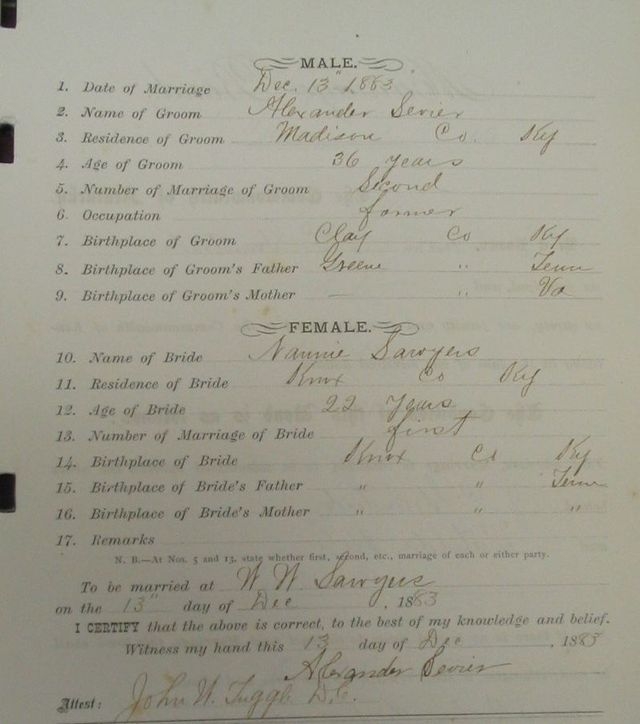 MALE.
1. Date of Marriage Dec. 13" 1883
2. Name of Groom Alexander Sevier
3. Residence of Groom Madison Co. Ky
4. Age of Groom 36 years
5. Number of Marriage of Groom Second
6. Occupation farmer
7. Birthplace of Groom Clay Co Ky
8. Birthplace of Groom's Father Greene " Tenn
9. Birthplace of Groom's Mother — " Va
FEMALE.
10. Name of Bride Nannie Sawyers
11. Residence of Bride Knox Co Ky
12. Age of Bride 22 years
13. Number of Marriage of Bride first
14. Birthplace of Bride Knox Co Ky
15. Birthplace of Bride's Father " " Tenn
16. Birthplace of Bride's Mother " " "
17. Remarks
N. B.—At Nos. 5 and 13, state whether first, second, etc., marriage of each or either party.
To be married at W W Sawyers
on the 13" day of Dec , 1883
I CERTIFY that the above is correct, to the best of my knowledge and belief.
Witness my hand this 13 day of Dec , 1883
Alexander Sevier
Attest: John W. Tuggle D.C.